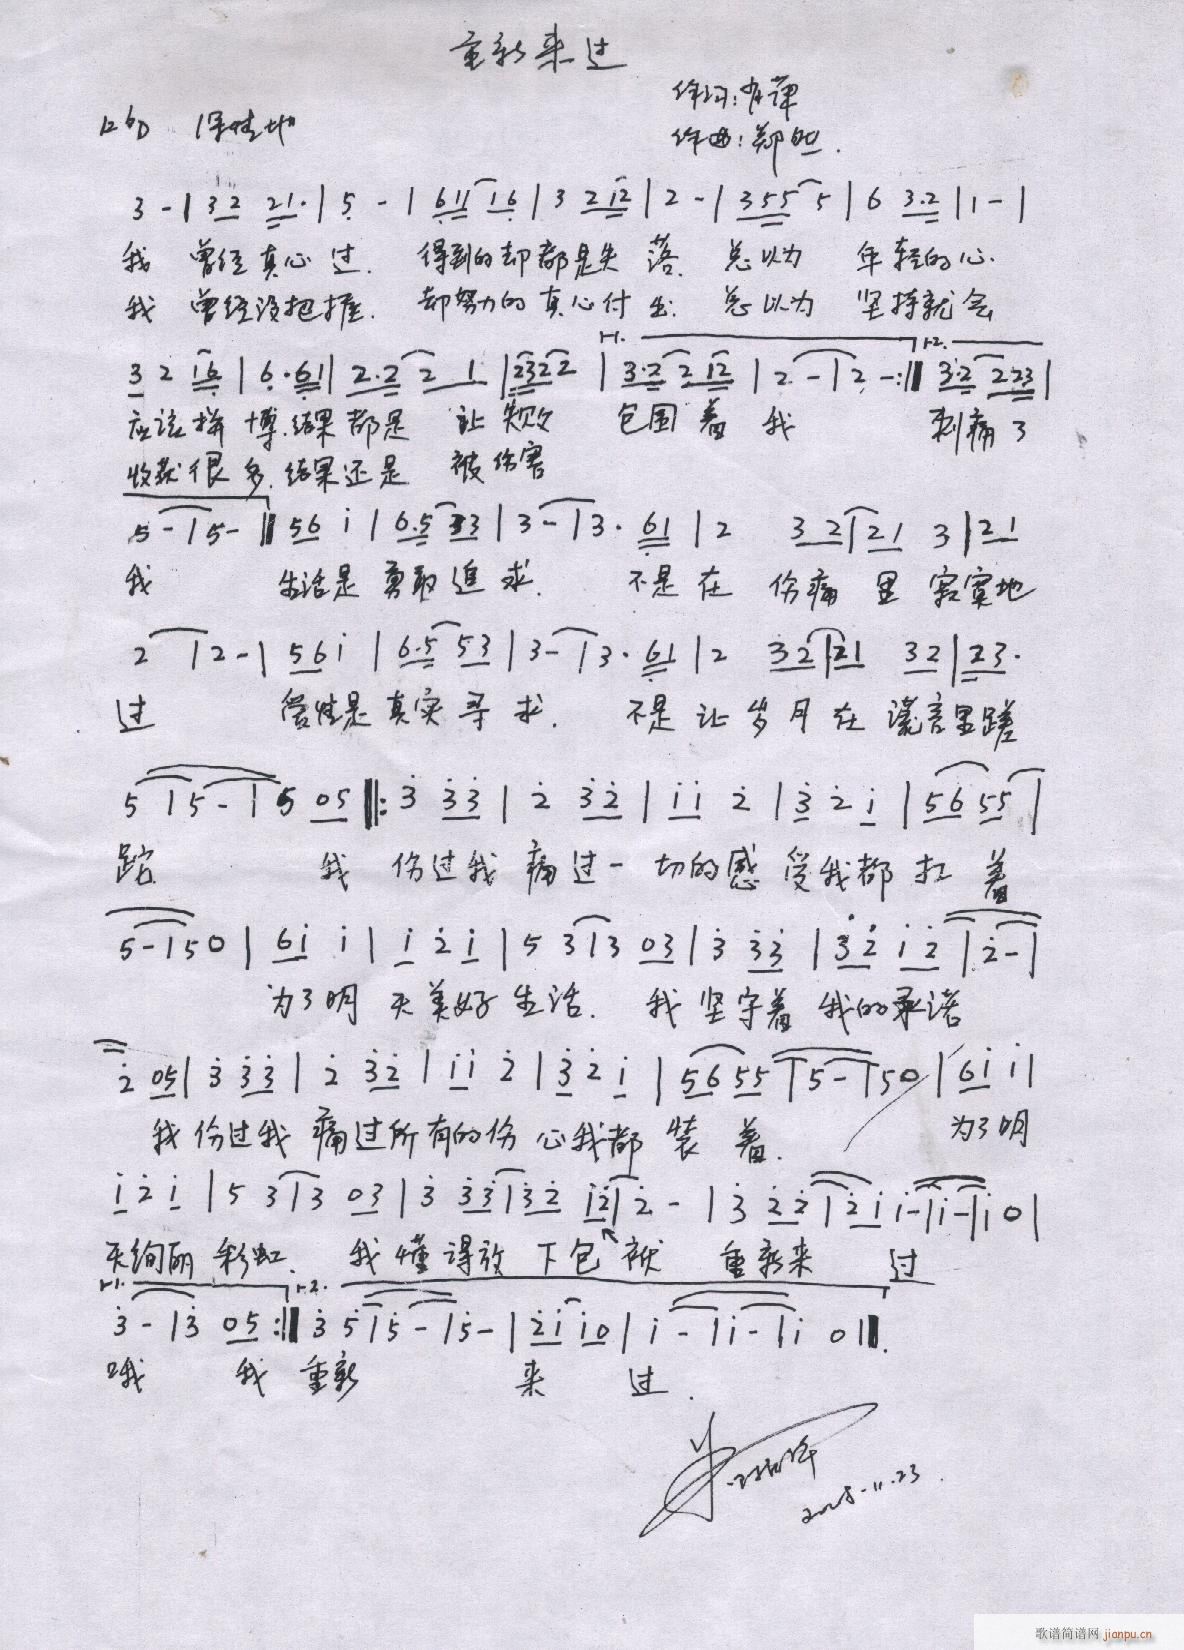 重新来过
作词:肖萍
作曲:郑
深情地
3 - | 3 2 2 1 · | 5 - | 6 1 1 1 6 | 3 2 1 2 | 2 - | 3 5 5 5 | 6 3·2 | 1 - |
我 曾经真心过. 得到的却都是失落. 总以为 年轻的心.
我 曾经没把握. 却努力的真心付出. 总以为 坚持就会
1. 2.
3 2 1 6 | 6·6 1 | 2·2 2 1 | 2 3 2 2 | 3·2 2 1 2 | 2 - | 2 - :‖ 3·2 2 2 3 |
应该拼博.结果都是 让失败 包围着我 刺痛了
收获很多.结果还是 被伤害
5 - | 5 - ‖ 5 6 i | 6·5 3 3 | 3 - | 3 · 6 1 | 2 3 2 | 2 1 3 | 2 1
我 生活是勇敢追求. 不是在伤痛里寂寞地
2 | 2 - | 5 6 i | 6·5 5 3 | 3 - | 3 · 6 1 | 2 3 2 | 2 1 3 2 | 2 3 ·
过 爱情是真实寻求. 不是让岁月在谎言里蹉
5 | 5 - | 5 0 5 ‖: 3 3 3 | 2 3 2 | i i 2 | 3 2 i | 5 6 5 5 |
跎 我 伤过我 痛过一切的感受我都扛着
5 - | 5 0 | 6 i i | i 2 i | 5 3 | 3 0 3 | 3 3 3 | 3 2 i 2 | 2 - |
为了明天美好生活. 我坚守着我的承诺
2 0 5 | 3 3 3 | 2 3 2 | i i 2 | 3 2 i | 5 6 5 5 | 5 - | 5 0 | 6 i i |
我伤过我 痛过所有的伤心我都装着. 为了明
i 2 i | 5 3 | 3 0 3 | 3 3 3 | 3 2 i 2 | 2 - | 3 2 2 | 2 i i - | i - | i 0 |
天绚丽彩虹. 我懂得放下包袱 重新来 过
1. 2.
3 - | 3 0 5 :‖ 3 5 | 5 - | 5 - | 2 i i 0 | i - | i - | i 0 ‖.
哦 我重新 来 过.
11.23
歌谱简谱网 jianpu.cn